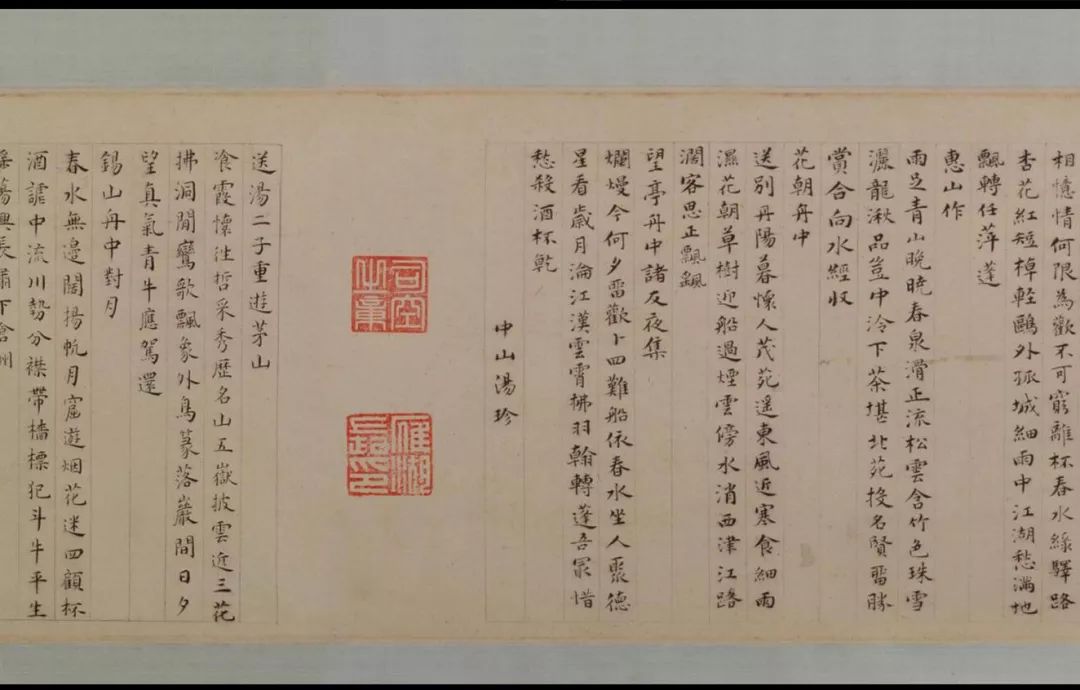 相憶情何限為歡不可窮離杯春水綠驛路
杏花紅短棹輕鷗外孤城細雨中江湖愁滿地
飄轉任萍蓬
惠山作
雨足青山晚曉春泉滑正流松雲含竹色珠雪
灑龍湫品豈中泠下茶堪北苑投名賢留勝
賞合向水經収
花朝舟中
送別丹陽暮懷人茂苑遥東風近寒食細雨
濕花朝草樹迎船過煙雲傍水消西津江路
濶客思正飄颻
望亭舟中諸友夜集
爛熳今何夕留歡卜四難船依春水坐人聚德
星看歲月淪江漢雲霄拂羽翰轉蓬吾最惜
愁殺酒杯乾
中山湯珍
司空之章
雁湖
送湯二子重遊茅山
飡霞懷往哲采秀歷名山五嶽披雲近三花
拂洞閒鸞歌飄象外鳥篆落巖間日夕
望真氣青牛應駕還
錫山舟中對月
春水無邊闊揚帆月窟遊烟花迷四顧杯
酒謔中流川勢分襟帶檣標犯斗牛平生